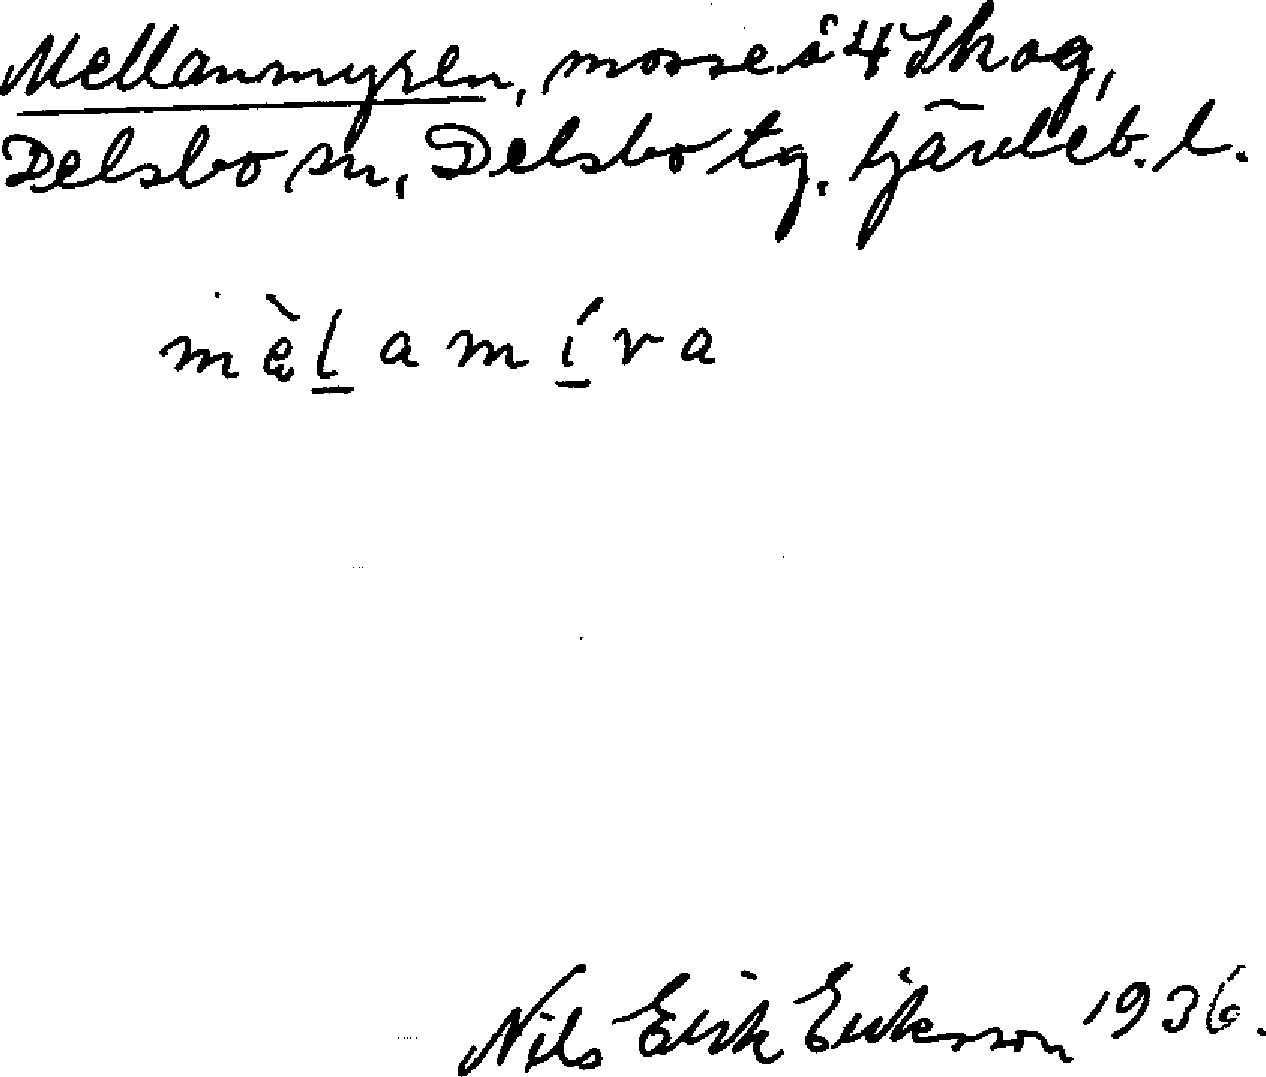 Mellanmyren, mosse å 4 Skog,
Delsbo sn, Delsbo tg. Gävleb. l.
mę̀l̲amí̲ra
Nils Erik Eriksson 1936.